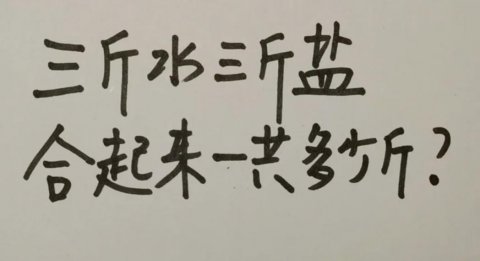 三斤水三斤盐
合起来一共多少斤?